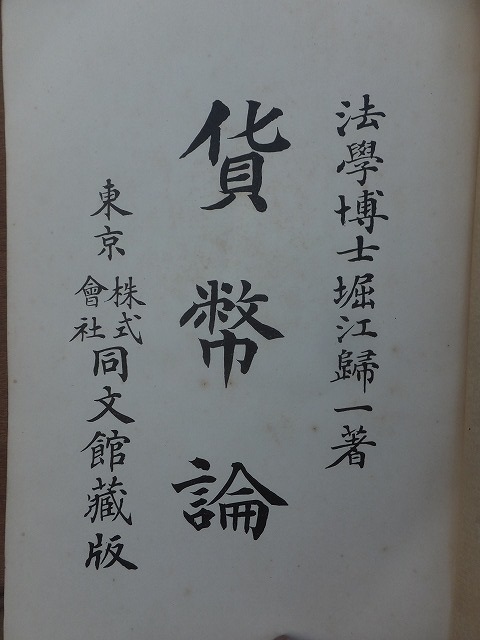 法學博士堀江歸一著
貨幣論
東京株式會社同文館藏版